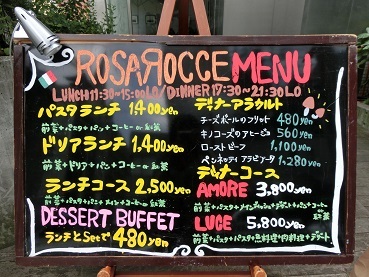 ROSAROCCE MENU
LUNCH 11:30~15:00LO/DINNER 17:30~21:30LO
パスタランチ 1,400yen
前菜+パスタ+パン+コーヒー or 紅茶
ドリアランチ 1,400yen
前菜+ドリア+パン+コーヒー or 紅茶
ランチコース 2,500yen
前菜+パスタ+パン+メイン+コーヒー or 紅茶
DESSERT BUFFET
ランチとSetで480yen
ディナーアラカルト
チーズボールのフリット 480yen
キノコーズのアヒージョ 560yen
ローストビーフ 1,100yen
ペンネッティ アラビアータ 1,280yen
ディナーコース
AMORE 3,800yen
前菜+パスタ+メインディッシュ+デザート+パン+コーヒー 紅茶
LUCE 5,800yen
前菜+パスタ+パスタ+魚料理+肉料理+デザート